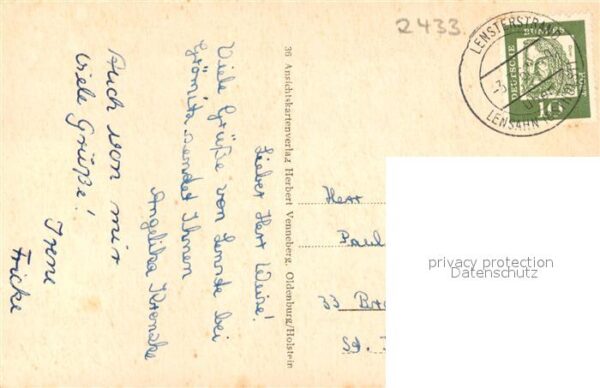 2433
LENSTERSTRAND
LENSAHN
DEUTSCHE
BUNDESPOST
10
Lieber Herr Weire!
Viele Grüße von Lenste bei
Grömitz sendet Ihnen
Angelika
Auch von mir
viele Grüße!
Irene
Fricke
36 Ansichtskartenverlag Herbert Venneberg, Oldenburg/Holstein
Herr
Paul
33
St.
privacy protection
Datenschutz